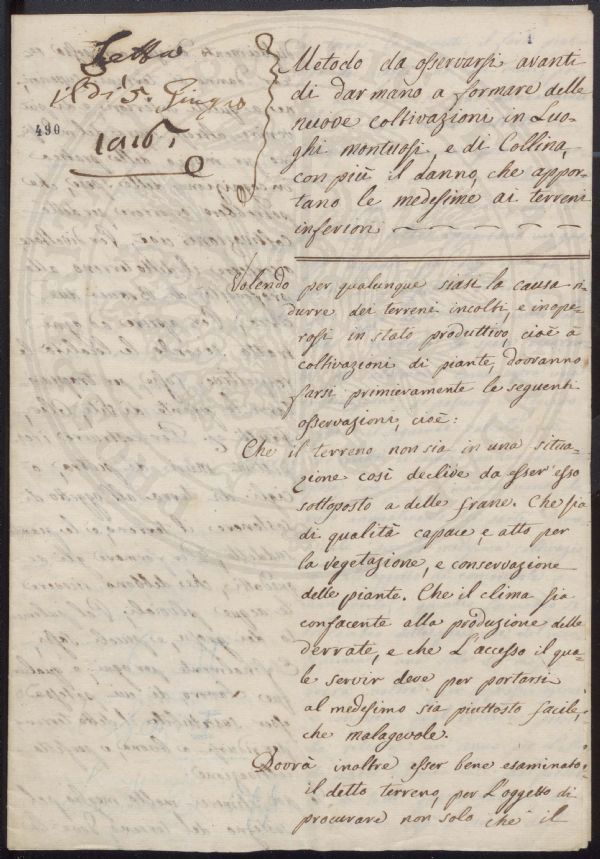 Letta
il dì 5. Giugno
1816
490
1
Metodo da osservarsi avanti
di dar mano a formare delle
nuove coltivazioni in Luo-
ghi montuosi, e di Collina,
con più il danno, che appor-
tano le medesime ai terreni
inferiori
Volendo per qualunque siasi la causa ri-
durre dei terreni incolti, e inope-
rosi in stato produttivo, cioè a
coltivazioni di piante, dovranno
farsi primieramente le seguenti
osservazioni, cioè:
Che il terreno non sia in una situa-
zione così declive da esser esso
sottoposto a delle frane. Che sia
di qualità capace, e atto per
la vegetazione, e conservazione
delle piante. Che il clima sia
confacente alla produzione delle
derrate, e che L'accesso il qua-
le servir deve per portarsi
al medesimo sia piuttosto facile,
che malagevole.
Dovrà inoltre esser bene esaminato
il detto terreno, per L'oggetto di
procurare non solo che il